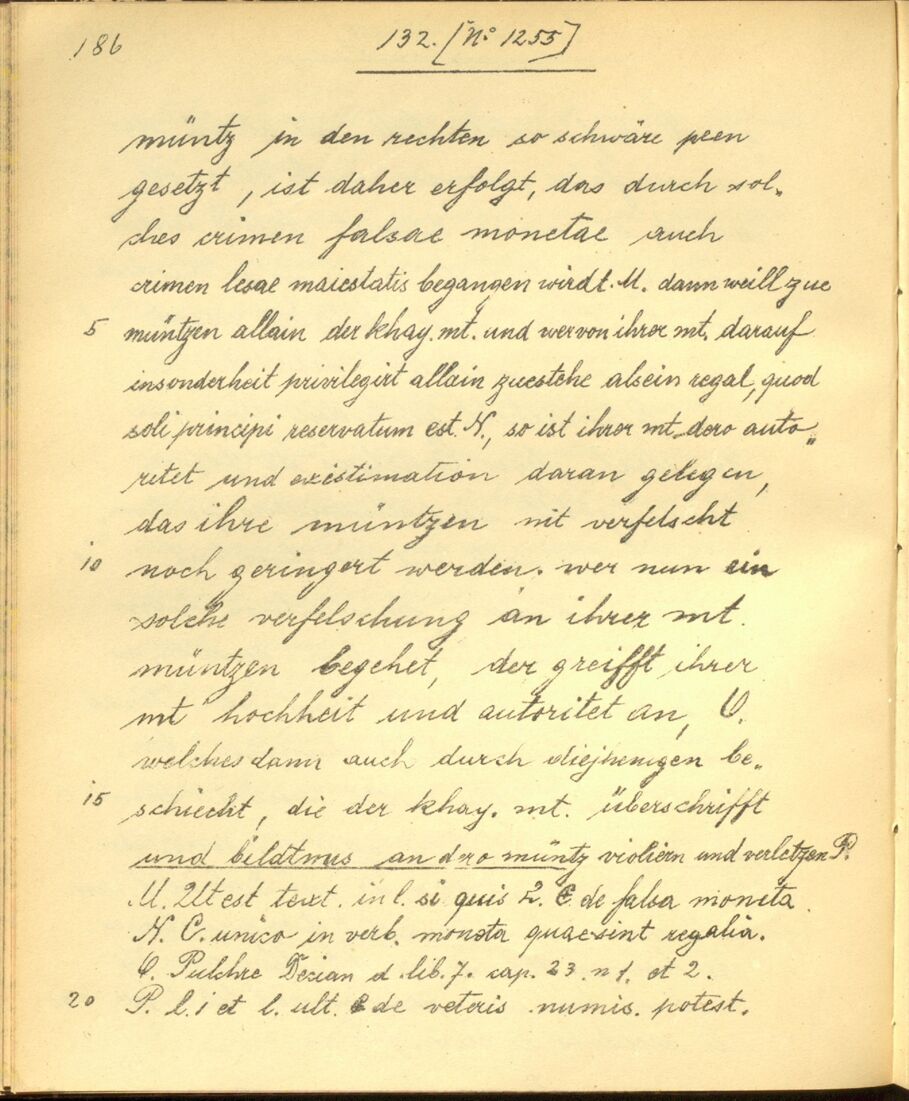 186
132. [No 1255]
müntz in den rechten so schwäre peen
gesetzt, ist daher erfolgt, das durch sol„
ches crimen falsae monetae auch
crimen lesae maiestatis begangen wirdt. M. dann weill zue
5 müntzen allain der khay. mt. und wer von ihrer mt. darauf
insonderheit privilegirt allain zuestehe als ein regal, quod
soli principi reservatum est. N., so ist ihrer mt. dero auto„
ritet und existimation daran gelegen,
das ihre müntzen nit verfelscht
10 noch geringert werden. wer nun ein
solche verfelschung an ihrer mt.
müntzen begehet, der greifft ihrer
mt hochheit und autoritet an, O.
welches dann auch durch diejhenigen be„
15 schiecht, die der khay. mt. überschrifft
und bildtnus an dero müntz violiern und verletzen P.
M. Ut est text. in l. si quis 2. C de falsa moneta
N. C. unico in verb. moneta quae sint regalia.
O. Pulchre Decian d. lib. 7. cap. 23. n 1. et 2.
20 P. l. 1 et l. ult. C de veteris numis. potest.